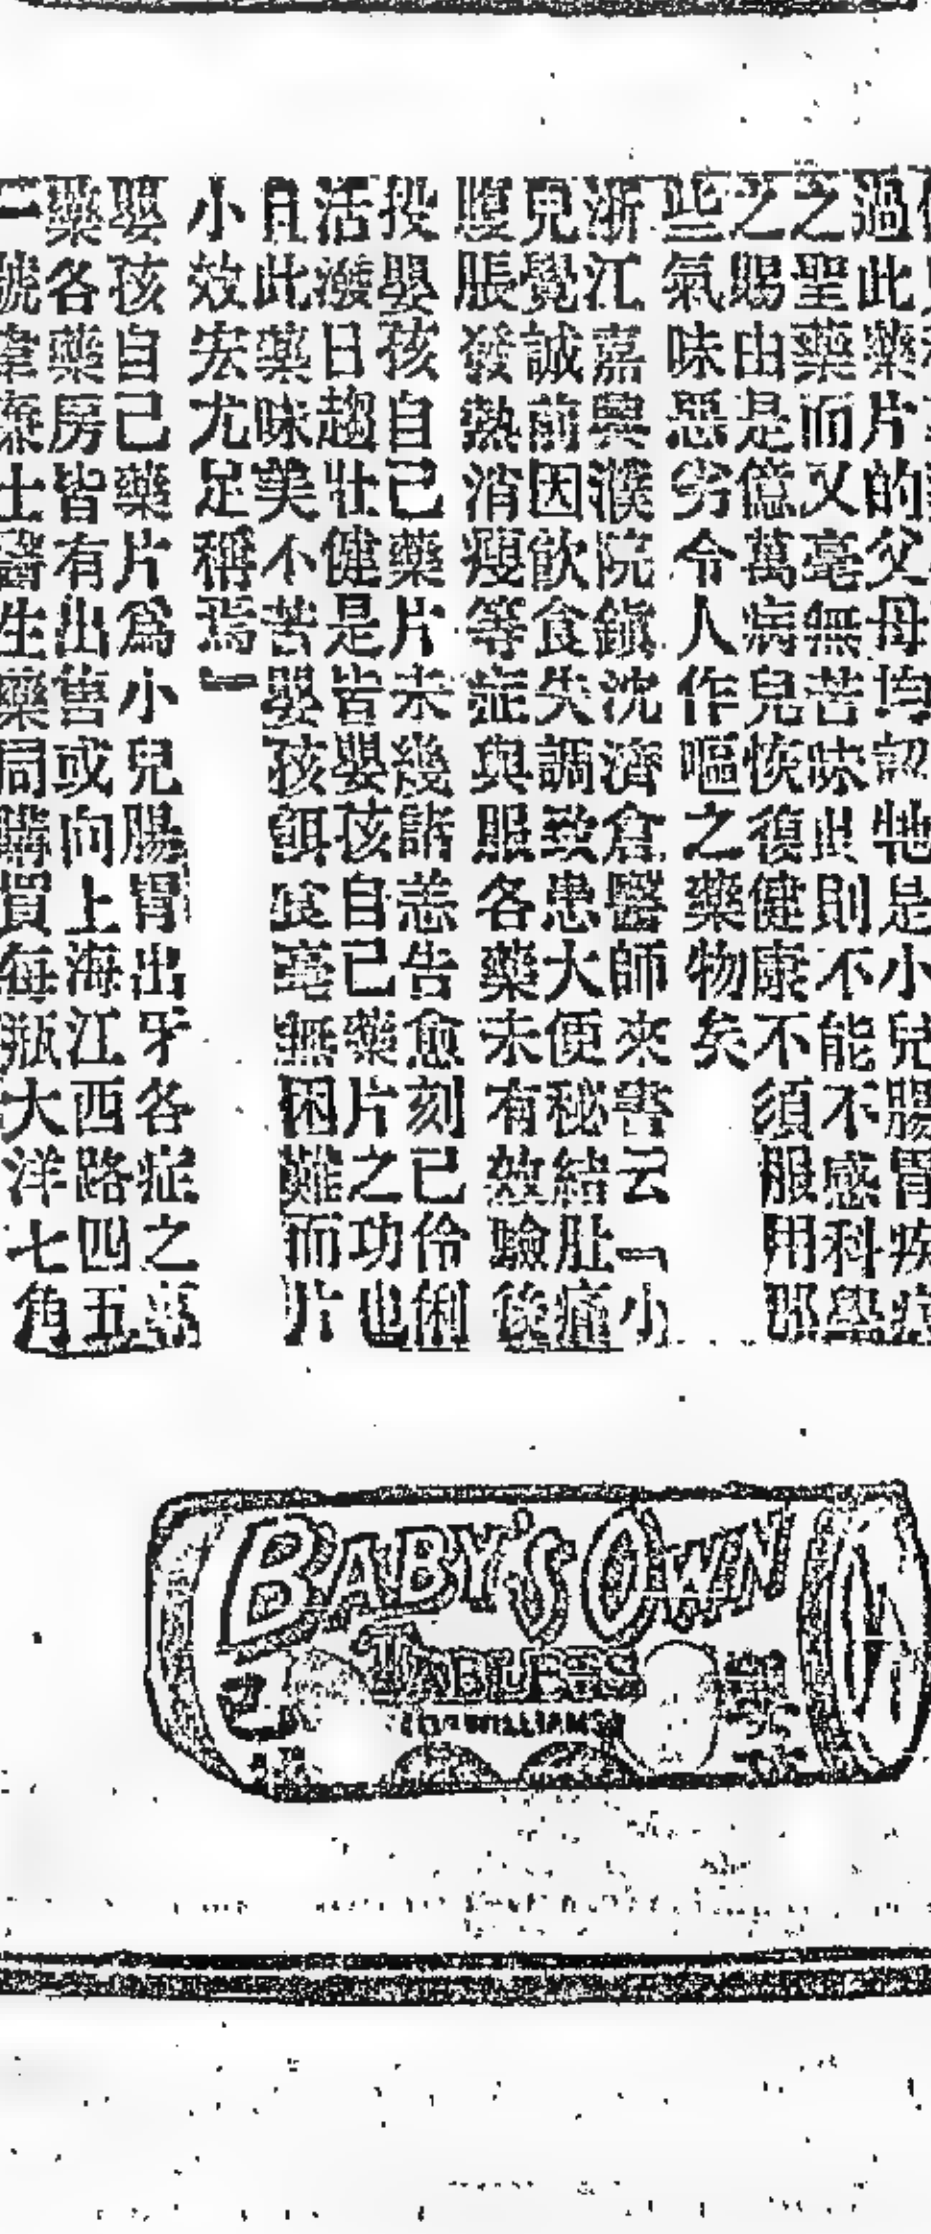 過此藥片的父母均認牠是小兒腸胃疾症
之聖藥而又毫無苦味此則不能不感科學
之賜由是億萬病兒恢復健康不須服用那
些氣味惡劣令人作嘔之藥物矣
浙江嘉興濮院鎮沈濟倉醫師來書云「小
兒覺誠前因飲食失調致患大便秘結肚痛
腹脹發熱消瘦等症與服各藥未有效驗後
投嬰孩自己藥片未幾諸恙告愈刻已伶俐
活潑日趨壯健是皆嬰孩自己藥片之功也
且此藥味美不苦嬰孩餌食毫無困難而片
小效宏尤足稱焉」
嬰孩自己藥片為小兒腸胃出牙各症之藥
藥各藥房皆有出售或向上海江西路四五
一號韋廉士醫生藥局購買每瓶大洋七角
BABY'S OWN
TABLETS
WILLIAMS